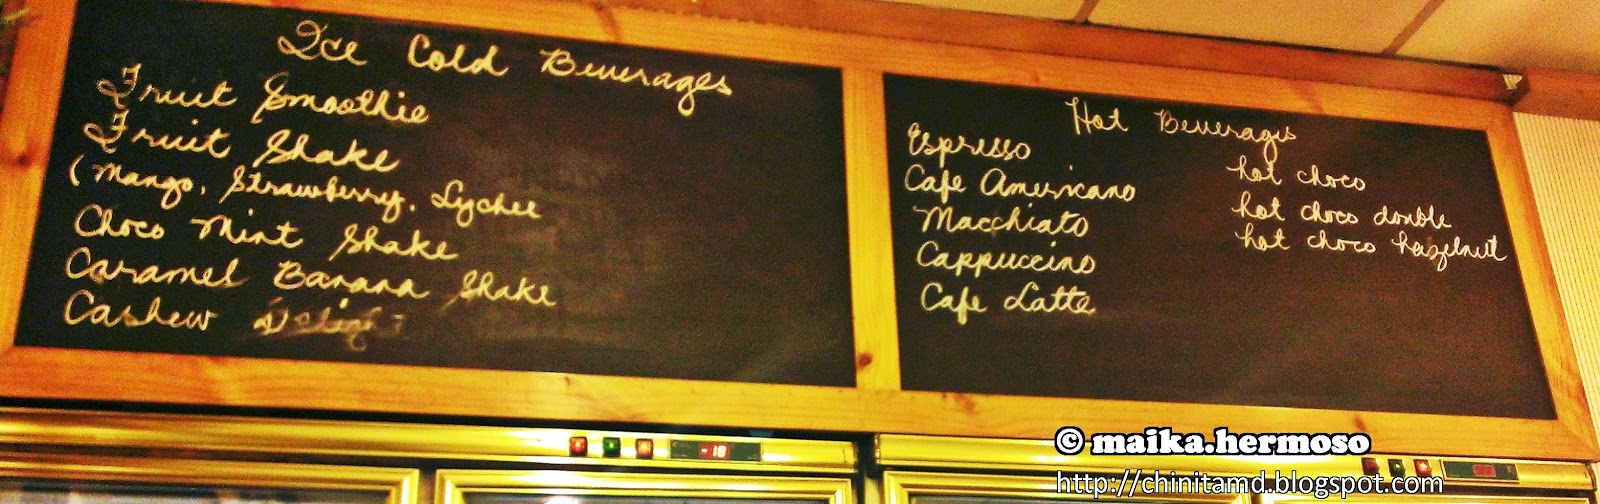 Ice Cold Beverages
Fruit Smoothie
Fruit Shake
(Mango, Strawberry, Lychee
Choco Mint Shake
Caramel Banana Shake
Cashew Delight
Hot Beverages
Espresso
Cafe Americano
Macchiato
Cappuccino
Cafe Latte
hot choco
hot choco double
hot choco hazelnut
-18
© maika.hermoso
http://chinitamd.blogspot.com